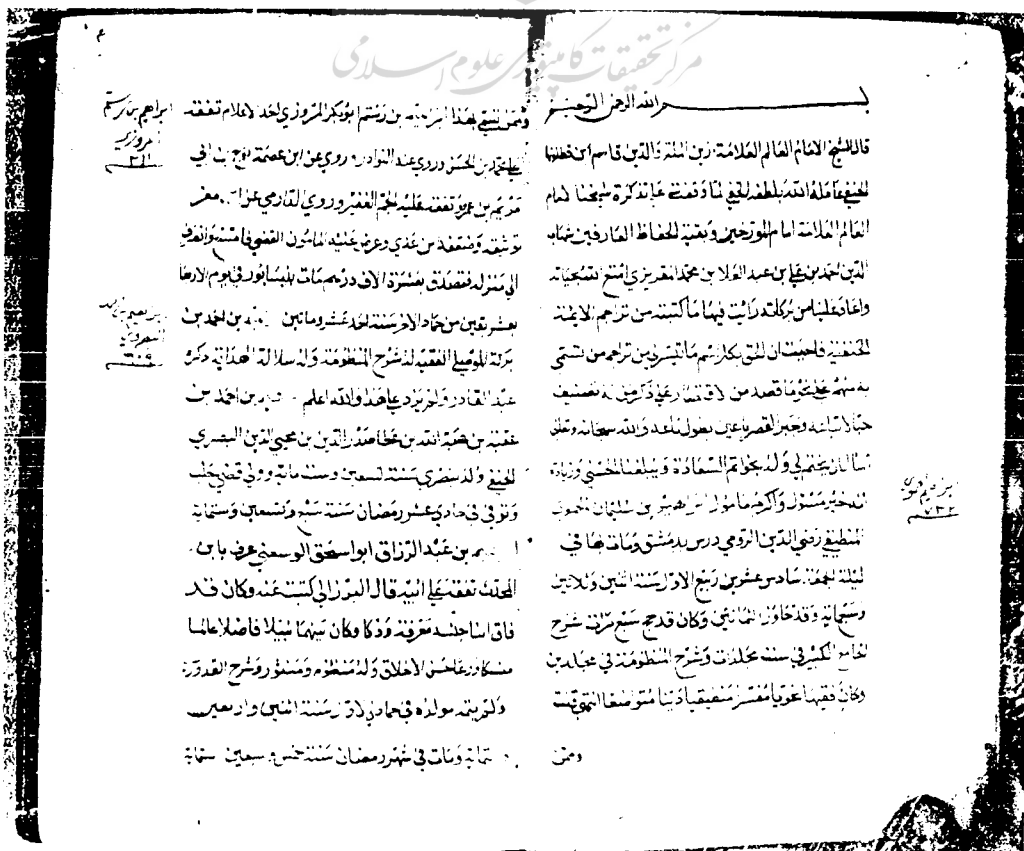 مركز تحقيقات كامپيوترى علوم اسلامى
بسم الله الرحمن الرحيم
قال الشيخ الامام العالم العلامة زين الملة والدين قاسم ابن قطلوبغا
الحنفي عامله الله بلطفه الخفي لما وقفت على تذكرة شيخنا الامام
العالم العلامة امام المورخين وبقية الحفاظ العارفين شهاب
الدين احمد بن علي بن عبد القادر بن محمد المقريزي امتع الله بحياته
واعاد علينا من بركاته رايت فيها ما كتبته من تراجم الايمة
الحنفية فاحببت ان الحق بكل اسم ما تيسر لي من تراجم من تسمى
به منهم على نحو ما قصد من الاقتصار على ذكر من له تصنيف
والله سبحانه وتعالى
اسأل ان يختم لي وله بخواتم السعادة ويبلغنا الحسنى وزيادة
انه خير مسئول واكرم مامول ابرهيم بن سليمان الحموي
المنطيقي رضي الدين الرومي درس بدمشق ومات بها في
ليلة الجمعة سادس عشرين ربيع الاول سنة اثنين وثلاثين
وسبعماية وقد جاوز الثمانين وكان قد حج سبع مرات شرح
الجامع الكبير في ست مجلدات وشرح المنظومة في مجلدين
وكان فقيها نحويا مفسرا منطيقيا دينا متواضعا انتهى قلت
وممن
ابرهيم
٧٣٢
وممن تسمى بهذا ابرهيم بن رستم ابو بكر المروزي احد الاعلام تفقه
على محمد بن الحسن وروى عنه النوادر وروى عن ابن عصمة نوح بن ابي
مريم بن عمرو تفقه عليه الجم الغفير وروى الدارمي عن ابن معين
توثيقه وضعفه ابن عدي وعرض عليه المامون القضا فامتنع وانصرف
الى منزله فتصدق بعشرة الاف درهم مات بنيسابور في يوم الاربعا
بعشر بقين من جماد الاخر سنة احدى عشر وماتين بن احمد بن
بركة الموصلي الفقيه له شرح المنظومة وله سلالة الهداية ذكره
عبد القادر ولم يزد على هذا والله اعلم بن احمد بن
عقبة بن هبة الله بن عطا صدر الدين بن محيي الدين البصري
الحنفي ولد ببصرى سنة تسعين وست ماية وولي قضا حلب
وتوفي في حادي عشر رمضان سنة سبع وتسعين وستماية
بن عبد الرزاق ابو اسحق الرسعني عرف بابن
المحدث تفقه على ابيه قال البرزالي كتبت عنه وكان قد
فاق ابنا جنسه معرفة وذكا وكان شهما نبيلا فاضلا عالما
الاخلاق وله منظوم ومنثور وشرح القدوري
ولم يتمه مولده في جمادى الاول سنة اثنين واربعين
ستماية ومات في شهر رمضان سنة خمس وسبعين ستماية
ابراهيم بن رستم
المروزي
٢١١